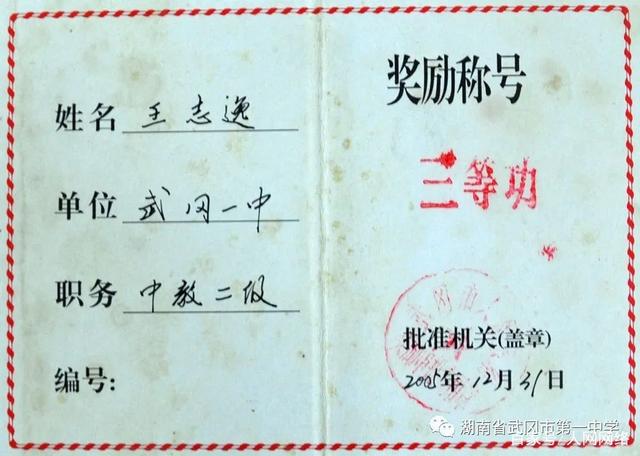 姓名 王志逸
单位 武冈一中
职务 中教二级
编号:
奖励称号
三等功
批准机关(盖章)
2005年12月31日
湖南省武冈市第一中学